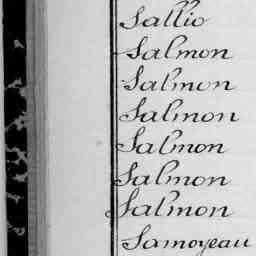 Sallio
Salmon
Salmon
Salmon
Salmon
Salmon
Salmon
Samoyeau